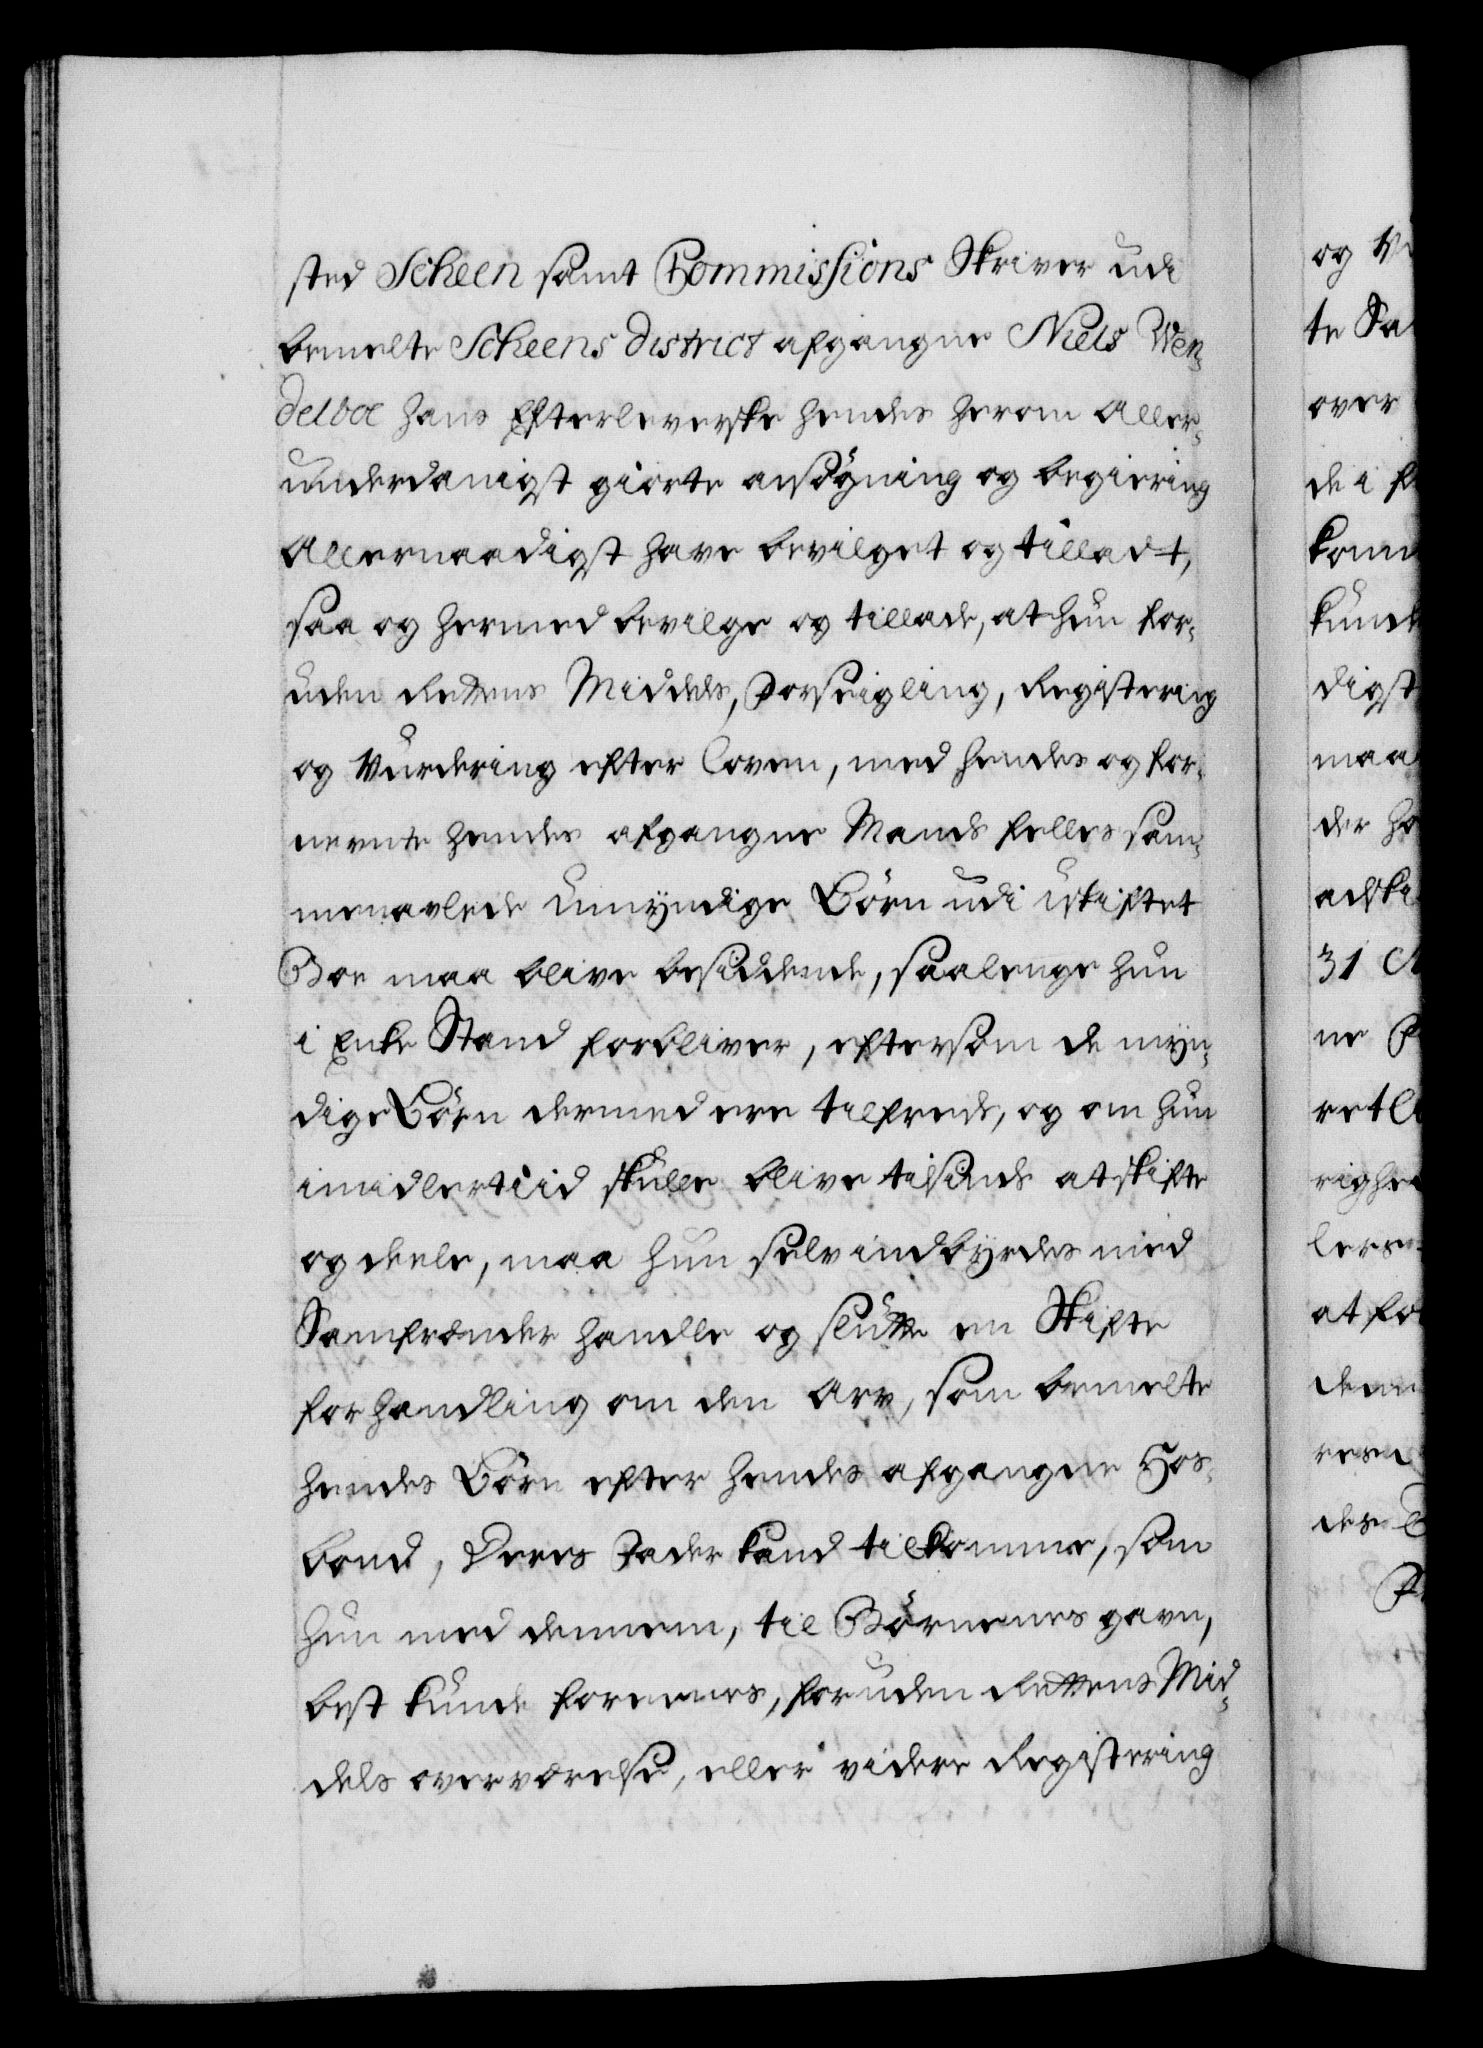 sted Scheen samt Commissions Skriver udi
bemelte Scheens District afgangne Niels Wen-
delboe hans Efterleverske hendes herom Aller-
underdanigst giorte ansögning og begiering
Allernaadigst have bevilget og tilladt,
saa og hermed bevilge og tillade, at hun for-
uden Rettens Middels, Forseigling, Registering
og Vurdering efter Loven, med hendes og for-
nevnte hendes afgangne Mands felles sam-
menavlede Umÿndige Börn udi uskiftet
Boe maa blive besiddende, saalenge hun
i Enke Stand forbliver, eftersom de mÿn-
dige Börn dermed ere tilfreds, og om hun
imidlertiid skulle blive tilsinds at skifte
og deele, maa hun selv indbÿrdes med
Samfrænder handle og slutte en Skifte
forhandling om den Arv, som bemelte
hendes Börn efter hendes afgangne Hos-
bond, Deres Fader kand tilkomme, som
hun med dennem, til Börnenes gavn,
best kunde foreenes, foruden Rettens Mid-
dels overværelse, eller videre Registering
og
te Sa
over
de i
komm
kund
digst
maa
der
adski
31
ne
retl
righe
lers
at fo
denn
des